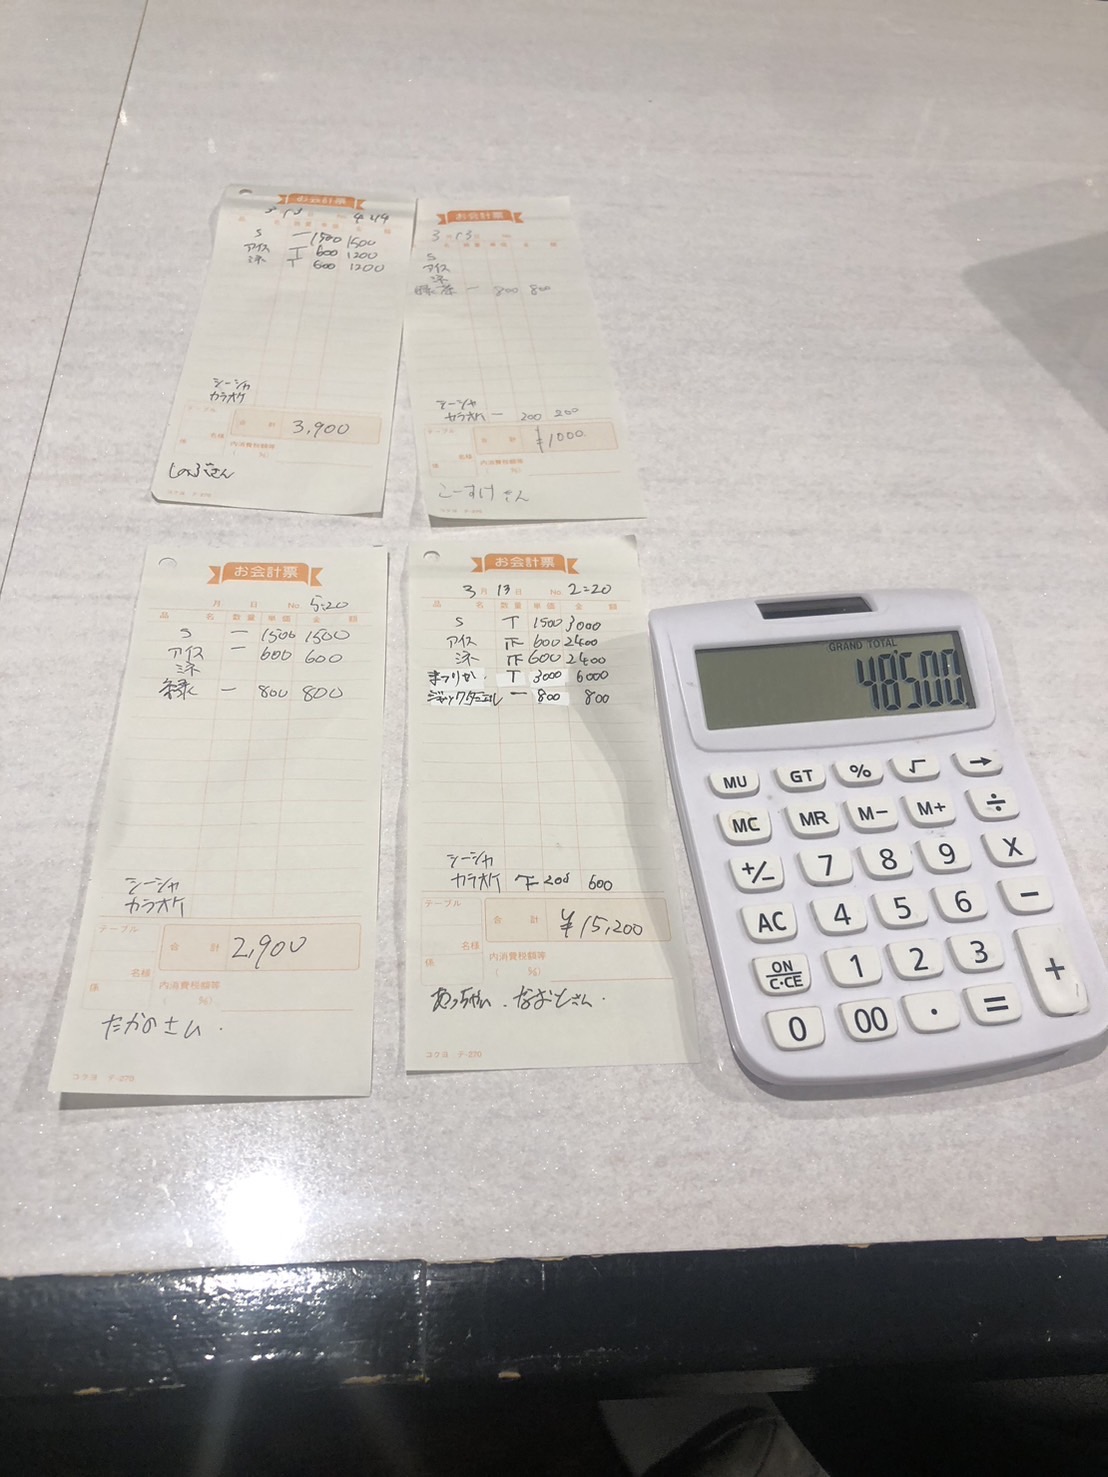 お会計票
3 13 4:49
S 一 1500 1500
アイス T 600 1200
T 600 1200
シーシャ
カラオケ
テーブル
合 計 3,900
名様
係
内消費税額等
( %)
しのぶさん
コクヨ テ-270
お会計票
3 13
S
アイス
緑茶 一 800 800
シーシャ
カラオケ 一 200 200
テーブル
合 計 ¥1000
名様
係
内消費税額等
( %)
こーすけさん
お会計票
月 日 No. 5:20
品 名 数量 単価 金 額
S 一 1500 1500
アイス 一 600 600
緑 一 800 800
シーシャ
カラオケ
テーブル
合 計 2,900
名様
係
内消費税額等
( %)
たかのさん.
コクヨ テ-270
お会計票
3月 13日 No. 2:20
品 名 数量 単価 金 額
S T 1500 3000
アイス 正 600 2400
正 600 2400
まつりか T 3000 6000
ジャックダニエル 一 800 800
シーシャ
カラオケ 下 200 600
テーブル
合 計 ¥15,200
名様
係
内消費税額等
( %)
あっちゃん.なおとさん.
コクヨ テ-270
GRAND TOTAL
48'500.
MU GT % √ →
MC MR M- M+ ÷
+/- 7 8 9 X
AC 4 5 6 −
ON C・CE 1 2 3 +
0 00 . =